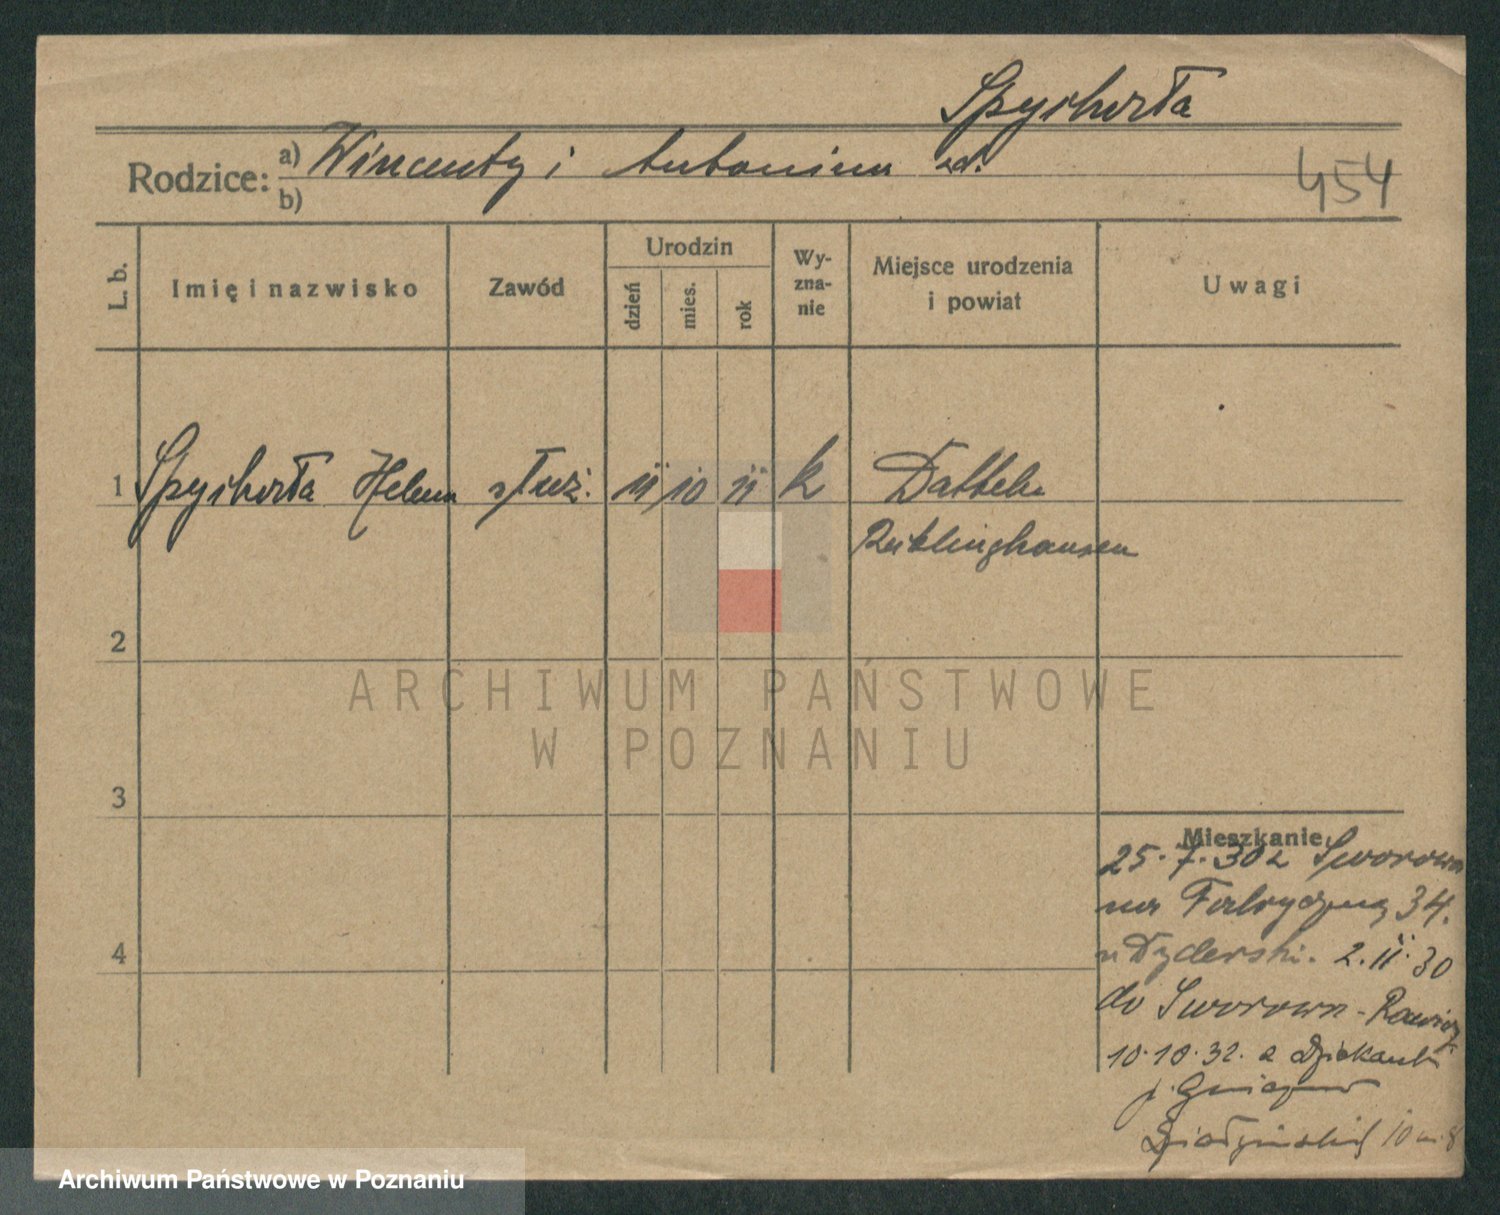 Spychała
Rodzice: a) Wincenty i Antonina
b)
454
L. b.
Imię i nazwisko
Zawód
Urodzin
dzień
mies.
rok
Wy-
zna-
nie
Miejsce urodzenia
i powiat
Uwagi
1 Spychała Helena służ. 11 10 11 k Datteln
Recklinghausen
2
3
4
Mieszkanie
25.7.30 z Sworowa
na Fabryczną 34.
u Dyderski. 2.11.30
do Sworowa - Rawicz
10.10.32. z
Działyńskich 10 m. 8
ARCHIWUM PAŃSTWOWE
W POZNANIU
Archiwum Państwowe w Poznaniu